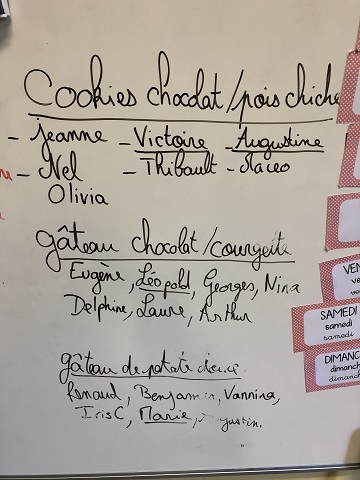 Cookies chocolat/pois chiche
- Jeanne - Victoire - Augustine
- Nel - Thibault - Maceo
Olivia
gâteau chocolat/courgette
Eugène, Léopold, Georges, Nina
Delphine, Laure, Arthur
gâteau de patate douce
Renaud, Benjamin, Vannina,
Iris C, Marie, Augustin.
VEN
SAMEDI
samedi
samedi
DIMANC
dimanch
dimanch